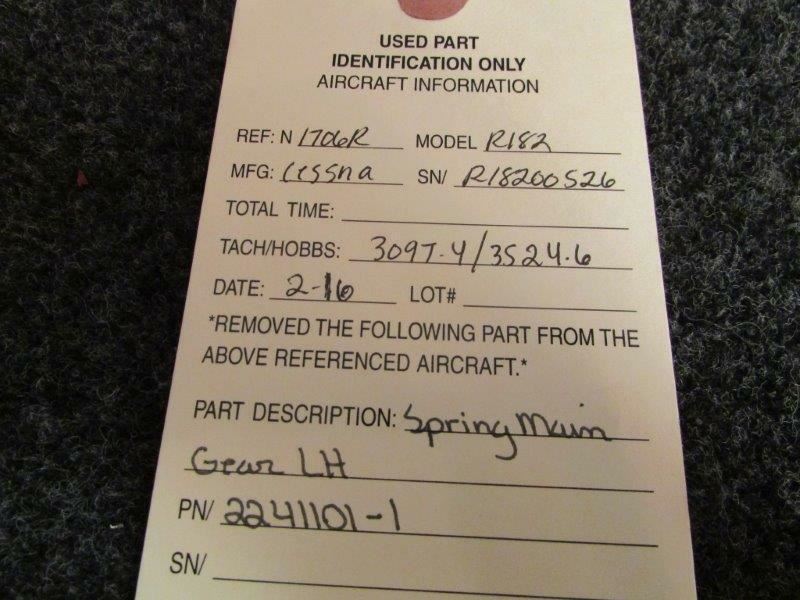 USED PART
IDENTIFICATION ONLY
AIRCRAFT INFORMATION
REF: N 1706R MODEL R182
MFG: Cessna SN/ R18200526
TOTAL TIME:
TACH/HOBBS: 3097.4/3524.6
DATE: 2-16 LOT#
*REMOVED THE FOLLOWING PART FROM THE
ABOVE REFERENCED AIRCRAFT.*
PART DESCRIPTION: Spring Main
Gear LH
PN/ 2241101-1
SN/